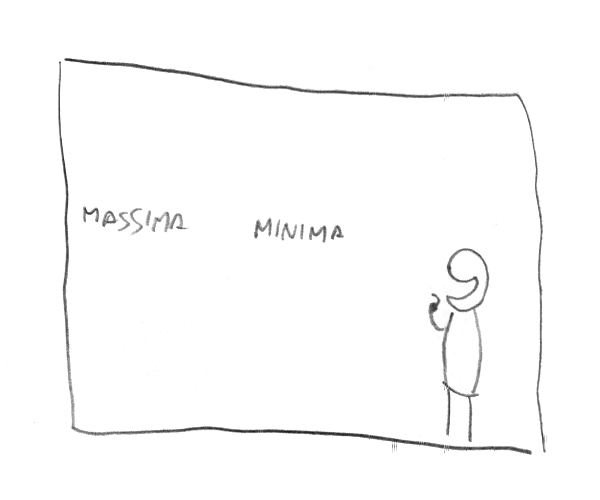 MASSIMA MINIMA